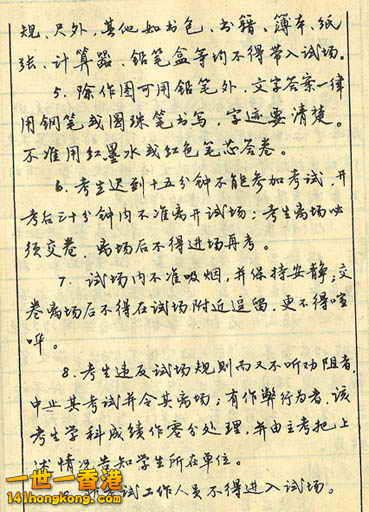 规、尺外,其他如书包、书籍、簿本、纸
张、计算器、铅笔盒等均不得带入试场。
5. 除作图可用铅笔外,文字答案一律
用钢笔或圆珠笔书写,字迹要清楚。
不准用红墨水或红色笔芯答卷。
6. 考生迟到十五分钟不能参加考试,开
考后三十分钟内不准离开试场;考生离场必
须交卷,离场后不得进场再考。
7. 试场内不准吸烟,并保持安静;交
卷离场后不得在试场附近逗留,更不得喧
哗。
8. 考生违反试场规则而又不听劝阻者,
中止其考试并令其离场;有作弊行为者,该
考生学科成绩作零分处理,并由主考把上
述情况告知学生所在单位。
试工作人员不得进入试场。
一世一香港
141hongkong.com